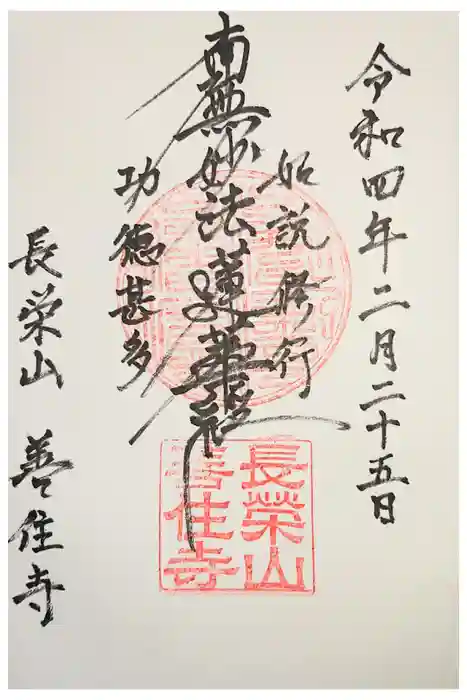 令和四年二月二十五日
如説修行
南無妙法蓮華経
功徳甚多
長栄山 善住寺
長榮山
善住寺